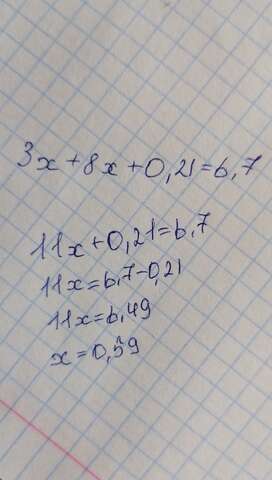 3x+8x+0,21=6,7
11x+0,21=6,7
11x=6,7-0,21
11x=6,49
x=0,59